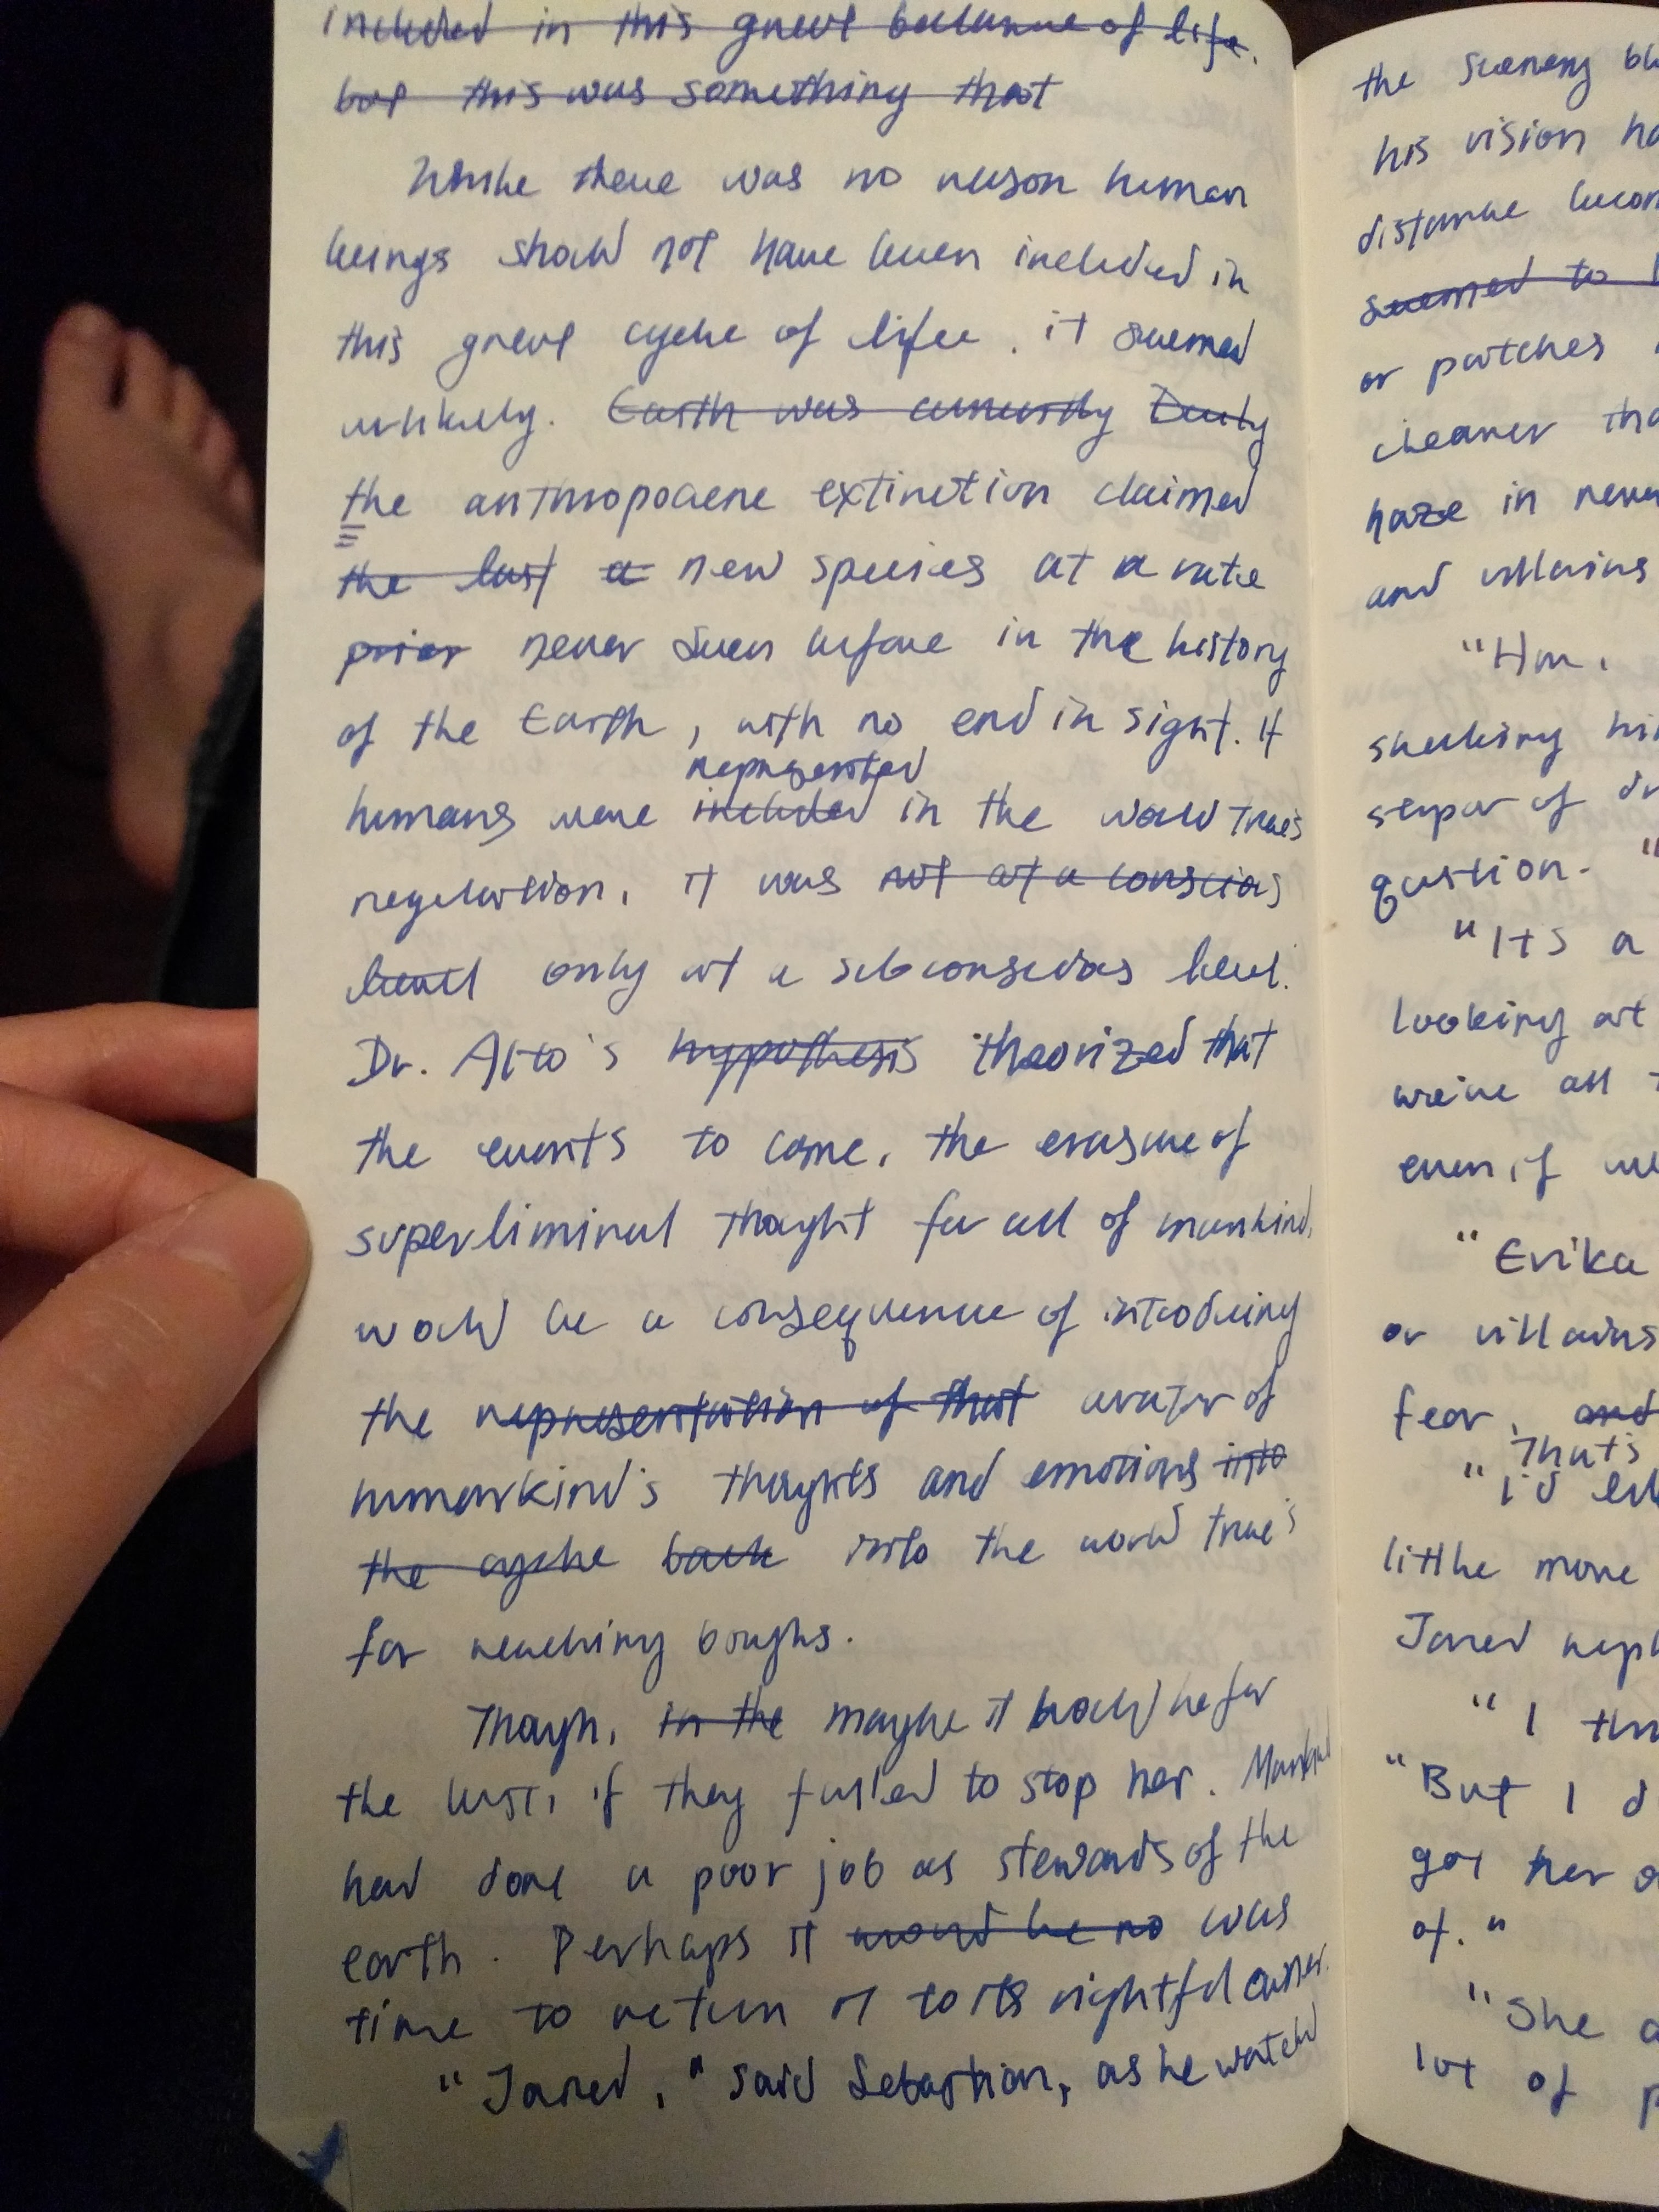 included in this great balance of life.
but this was something that
While there was no reason human
beings should not have been included in
this great cycle of life, it seemed
unlikely. Earth was currently Daily
the anthropocene extinction claimed
the last a new species at a rate
prior never seen before in the history
of the Earth, with no end in sight. If
represented
humans were included in the world tree's
regulation, it was not at a conscious
level only at a subconscious level.
Dr. Alto's hypothesis theorized that
the events to come, the erasure of
superliminal thought for all of mankind,
would be a consequence of introducing
the representation of that avatar of
humankind's thoughts and emotions into
the cycle back into the world tree's
far reaching boughs.
Though, in the maybe it would be for
the best, if they failed to stop her. Mankind
had done a poor job as stewards of the
earth. Perhaps it would be no was
time to return it to its rightful owner.
"Jared," said Sebastian, as he watched
the scenery
his vision
distance
seemed to
or patches
clearer
haze in
and villains
"Hm.
shaking
stupor of
question. "
"It's a
looking at
we've all
even if we
"Erika
or villains
fear, and
"That's
"I'd
little more
Jared
"I
"But I
got her
of."
"She
lot of